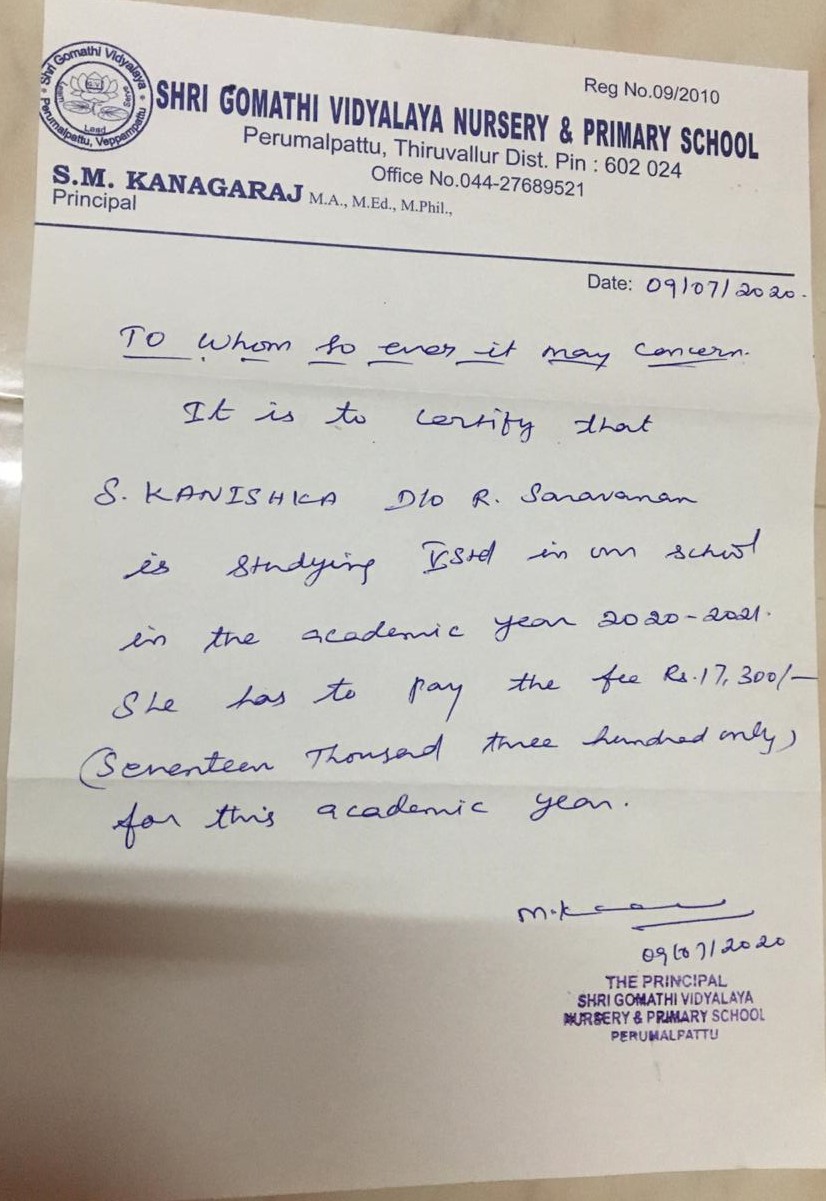 Shri Gomathi Vidyalaya
S.V.
Learn
Serve
Lead
Perumalpattu, Veppampattu
Reg No.09/2010
SHRI GOMATHI VIDYALAYA NURSERY & PRIMARY SCHOOL
Perumalpattu, Thiruvallur Dist. Pin : 602 024
Office No.044-27689521
S.M. KANAGARAJ M.A., M.Ed., M.Phil.,
Principal
Date: 09/07/2020.
To Whom so ever it may concern.
It is to certify that
S. KANISHKA D/o R. Saravanan
is studying V Std in our school
in the academic year 2020-2021.
She has to pay the fee Rs.17,300/-
(Seventeen Thousand three hundred only)
for this academic year.
09/07/2020
THE PRINCIPAL
SHRI GOMATHI VIDYALAYA
NURSERY & PRIMARY SCHOOL
PERUMALPATTU